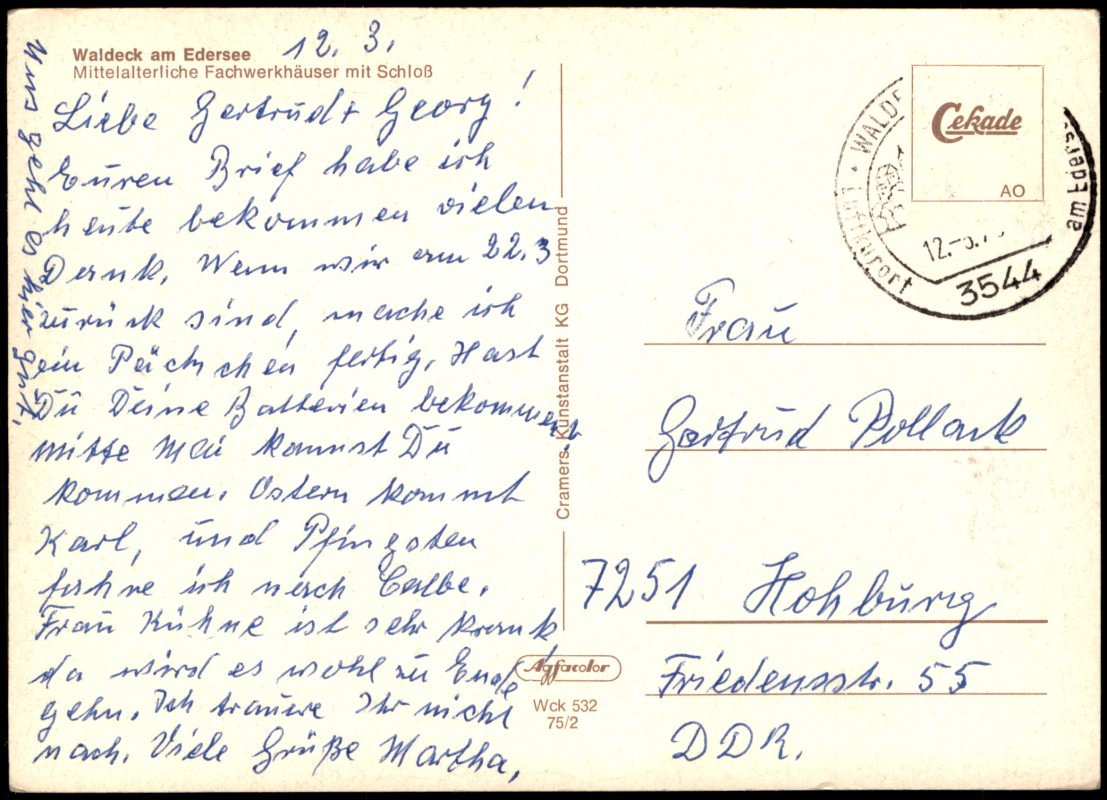 Waldeck am Edersee
Mittelalterliche Fachwerkhäuser mit Schloß
12. 3.
Liebe Gertrud + Georg!
Euren Brief habe ich
heute bekommen vielen
Dank. Wenn wir am 22.3
zurück sind, mache ich
ein Päckchen fertig. Hast
Du Deine Batterien bekommen,
mitte Mai kannst Du
kommen. Ostern kommt
Karl, und Pfingsten
fahre ich nach Calbe.
Frau Kühne ist sehr krank
da wird es wohl zu Ende
gehn. Ich trauere Ihr nicht
nach. Viele Grüße Martha,
Uns geht es hier gut.
Cramers Kunstanstalt KG Dortmund
Agfacolor
Wck 532
75/2
Cekade
AO
Luftkurort • WALDE
am Edersee
12.-3.7
3544
Frau
Gertrud Pollack
7251 Hohburg
Friedensstr. 55
DDR.